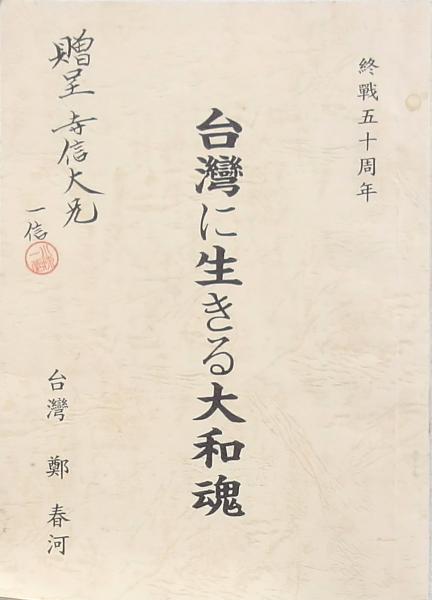 終戰五十周年
台灣に生きる大和魂
贈呈 寺信大兄
一信
台灣 鄭春河